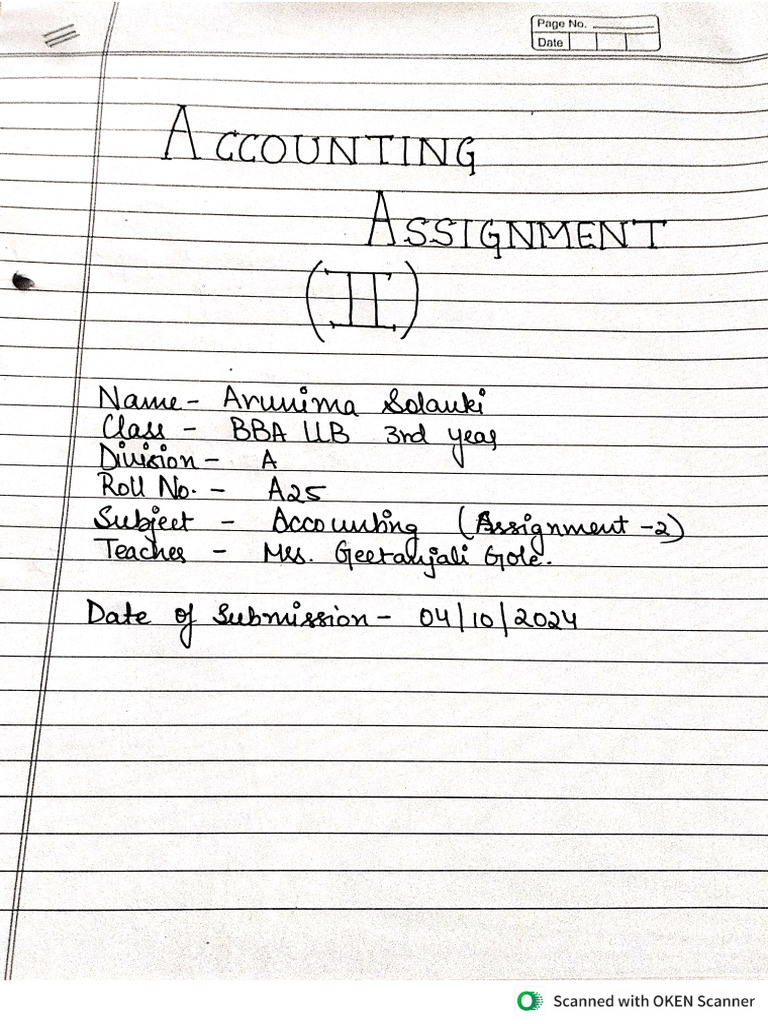 Page No.
Date
ACCOUNTING
ASSIGNMENT
(II)
Name - Arunima Solanki
Class - BBA LLB 3rd year
Division - A
Roll No. - A25
Subject - Accounting (Assignment -2)
Teacher - Mrs. Geetanjali Gole.
Date of Submission - 04/10/2024
Scanned with OKEN Scanner